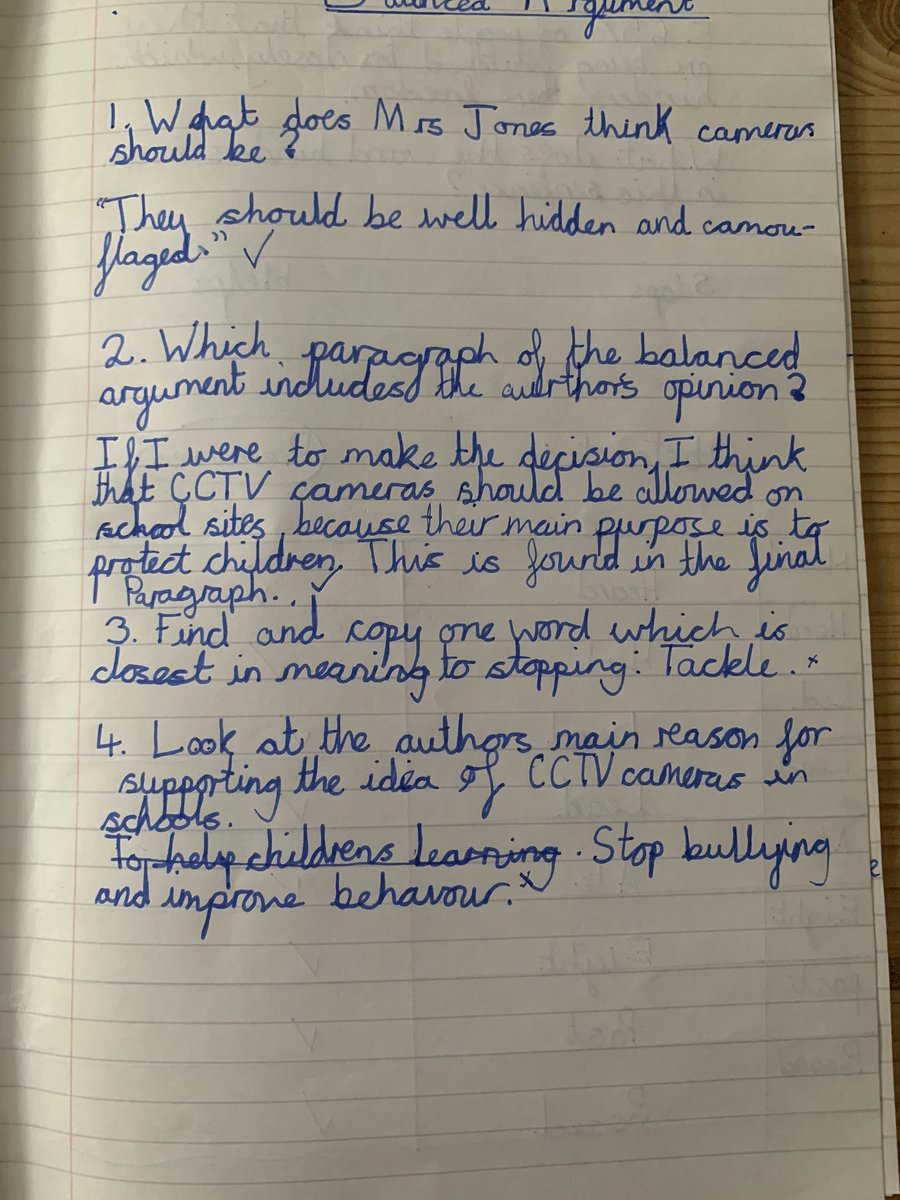 Balanced Argument
1. What does Mrs Jones think cameras
should be?
"They should be well hidden and camou-
flaged." ✓
2. Which paragraph of the balanced
argument includes the aurthor's opinion?
If I were to make the decision, I think
that CCTV cameras should be allowed on
school sites, because their main purpose is to
protect children. This is found in the final
Paragraph. ✓
3. Find and copy one word which is
closest in meaning to stopping: Tackle. ×
4. Look at the authors main reason for
supporting the idea of CCTV cameras in
schools.
To help childrens learning. Stop bullying
and improve behavour. ×